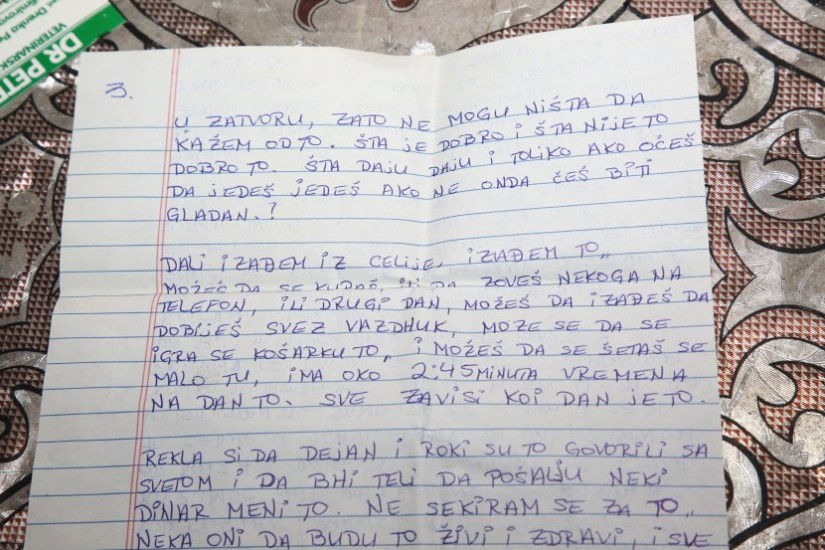 DR PET
VETERINARSK
3.
U ZATVORU, ZATO NE MOGU NIŠTA DA
KAŽEM OD TO. ŠTA JE DOBRO I ŠTA NIJE TO
DOBRO TO. ŠTA DAJU DAJU I TOLIKO AKO OĆEŠ
DA JEDEŠ JEDEŠ AKO NE ONDA ĆEŠ BITI
GLADAN.?
DALI IZAĐEM IZ CELIJE, IZAĐEM TO,,
MOŽEŠ DA SE KUPAŠ, ILI DA ZOVEŠ NEKOGA NA
TELEFON, ILI DRUGI DAN, MOŽEŠ DA IZAĐEŠ DA
DOBIJEŠ SVEZ VAZDHUK, MOZE SE DA SE
IGRA SE KOŠARKU TO,, I MOŽEŠ DA SE ŠETAŠ SE
MALO TU, IMA OKO 2:45 MINUTA VREMENA
NA DAN TO. SVE ZAVISI KOI DAN JE TO.
REKLA SI DA DEJAN I ROKI SU TO GOVORILI SA
SVETOM I DA BHI TELI DA POŠALJU NEKI
DINAR MENI TO. NE SEKIRAM SE ZA TO,,
NEKA ONI DA BUDU TO ŽIVI I ZDRAVI, I SVE